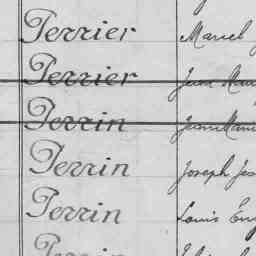 Perrier Marcel
Perrier Jean
Perrin Jean Marie
Perrin Joseph
Perrin Louis
Perrin